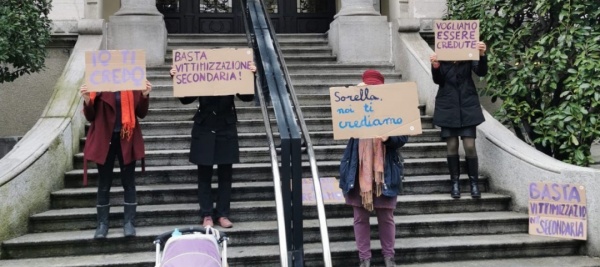 IO TI
CREDO
BASTA
VITTIMIZZAZIONE
SECONDARIA!
Sorella,
noi ti
crediamo
VOGLIAMO
ESSERE
CREDUTE
BASTA
VITTIMIZZAZIO
SECONDARIA